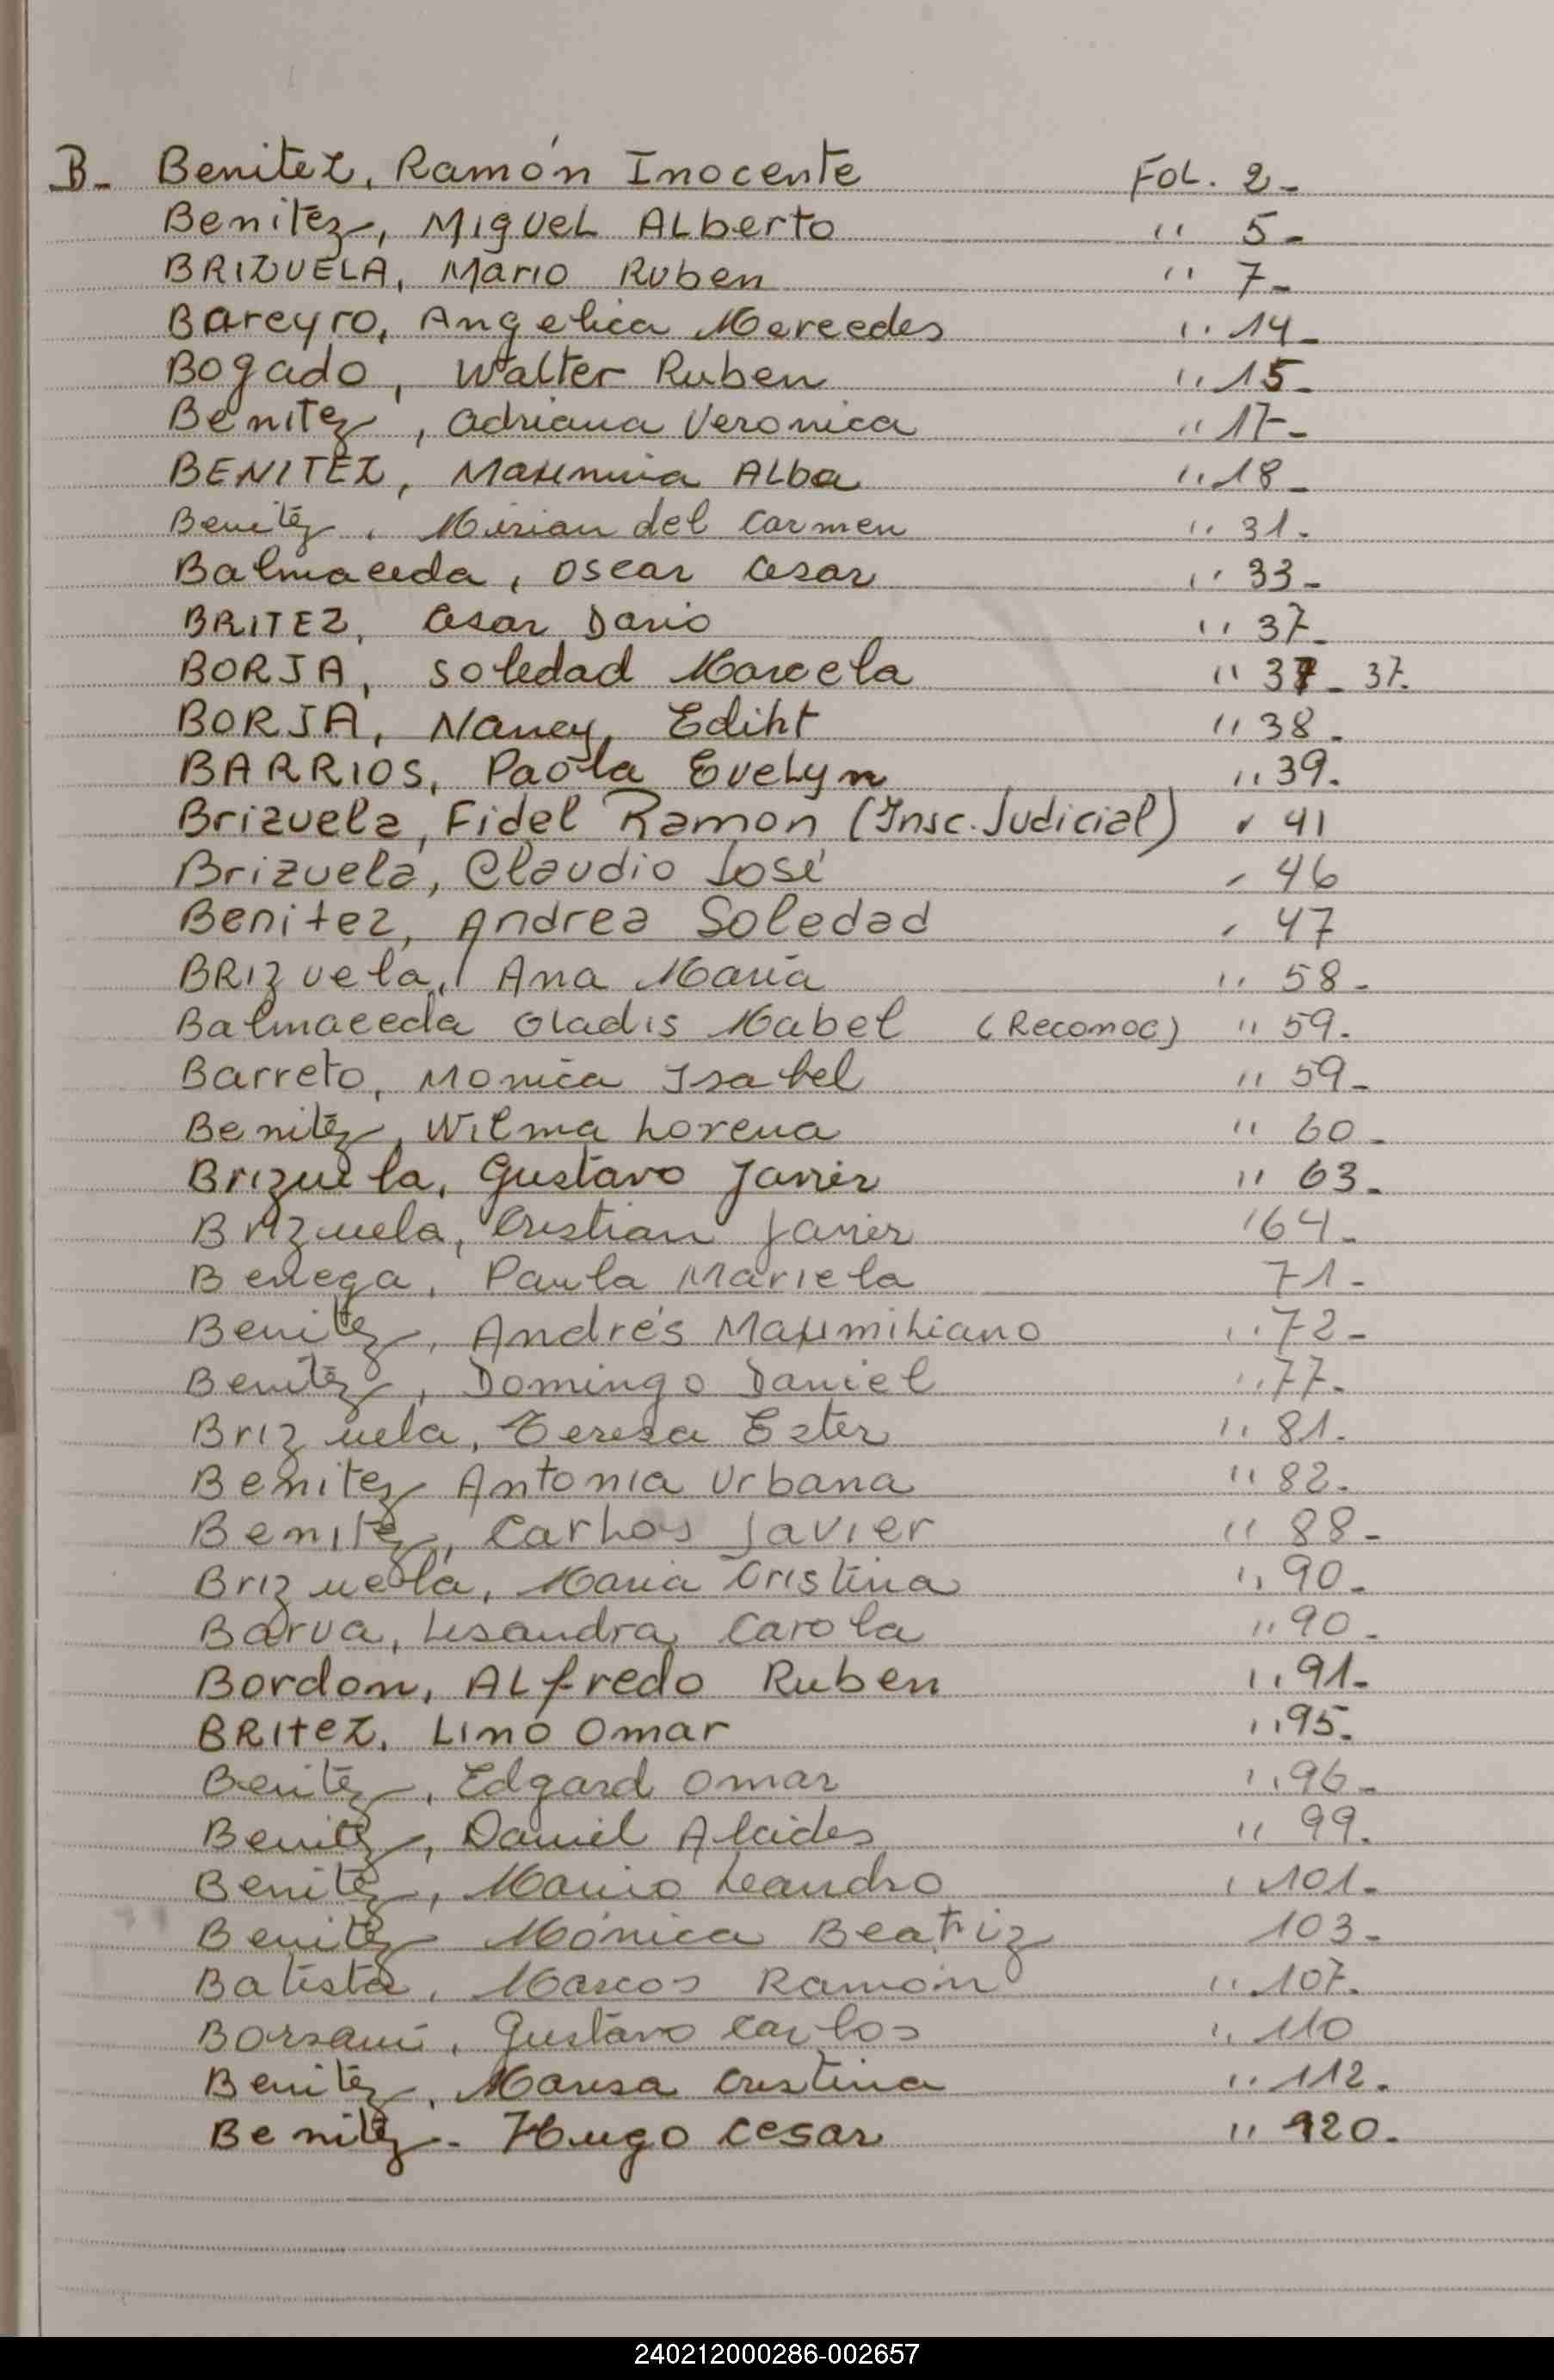 B- Benitez, Ramón Inocente FOL. 2-
Benitez, Miguel Alberto " 5-
BRIZUELA, Mario Ruben " 7-
Bareyro, Angelica Mercedes " 14-
Bogado, Walter Ruben " 15-
Benitez, Adriana Veronica " 17-
BENITEZ, Maximina Alba " 18-
Benitez, Mirian del Carmen " 31-
Balmaceda, Oscar Cesar " 33-
BRITEZ, Cesar Dario " 37-
BORJA, Soledad Marcela " 37- 37.
BORJA, Nancy Ediht " 38-
BARRIOS, Paola Evelyn " 39.
Brizuela, Fidel Ramon (Insc. Judicial) " 41
Brizuela, Claudio José " 46
Benitez, Andrea Soledad " 47
BRIzuela, Ana Maria " 58-
Balmaceda Gladis Mabel (Reconoc) " 59.
Barreto, Monica Isabel " 59-
Benitez, Wilma Lorena " 60-
Brizuela, Gustavo Javier " 63-
Brizuela, Cristian Javier " 64-
Benega, Paula Mariela 71-
Benitez, Andrés Maximiliano " 72-
Benitez, Domingo Daniel " 77-
Brizuela, Teresa Ester " 81-
Benitez Antonia Urbana " 82-
Benitez, Carlos Javier " 88-
Brizuela, Maria Cristina " 90-
Barua, Lisandra Carola " 90-
Bordon, Alfredo Ruben " 91-
BRITEZ, Lino Omar " 95-
Benitez, Edgard Omar " 96-
Benitez, Daniel Alcides " 99.
Benitez, Mario Leandro " 101-
Benitez Mónica Beatriz 103-
Batista, Marcos Ramón " 107-
Borsani, Gustavo Carlos " 110
Benitez, Marisa Cristina " 112.
Benitez- Hugo Cesar " 120-
240212000286-002657